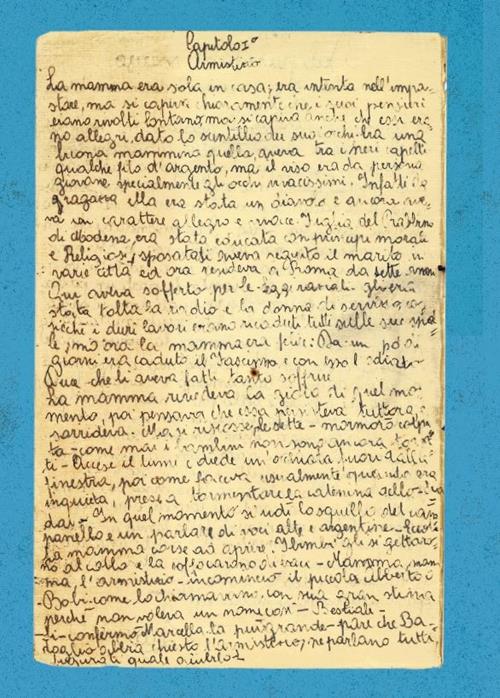 Capitolo Iº
Armistizio
La mamma era sola in casa; era intenta nell'impa-
stare, ma si capiva chiaramente che i suoi pensieri
erano rivolti lontano, ma si capiva anche che essi era
no allegri, dato lo scintillio dei suoi occhi. Era una
buona mammina quella, aveva tra i neri capelli
qualche filo d'argento, ma il viso era da persona
giovane specialmente gli occhi vivacissimi. Infatti da
ragazza ella era stata un diavolo e ancora ave
va un carattere allegro e vivace. Figlia del Rabbino
di Modena, era stata educata con principi morali
e Religiosi, sposatasi aveva seguito il marito in
varie città ed ora risiedeva a Roma da sette anni
Qui aveva sofferto per le leggi razziali. gli era
stata tolta la radio e la donna di servizio
i duri lavori erano ricaduti tutti sulle sue spal
le, ma ora la mamma era felice: Da un po' di
giorni era caduto il Fascismo e con esso l'odiato
Duce che li aveva fatti tanto soffrire
La mamma rivedeva la gioia di quel mo
mento, poi pensava che essa persisteva tuttora e
sorrideva. Ma si riscosse, le sette - mormorò colpi
ta - come mai i bambini non sono ancora torna
ti - Accese il lume e diede un'occhiata fuori dalla
finestra, poi come faceva usualmente quando era
inquieta, prese a tormentare la catenina
In quel momento si udì lo squillo del cam
panello e un parlare di voci alte e argentine - Eccoli
La mamma corse ad aprire. I bimbi gli si gettaro
no al collo e la soffocarono di baci - Mamma, mam
ma, l'armistizio - incominciò il piccolo Alberto o
Bobi come lo chiamavano, con sua gran stizza
perché non voleva un nome così - Bestiale -
- Si - confermò Marcella la più grande - pare che Ba-
doglio abbia chiesto l'armistizio, ne parlano tutti